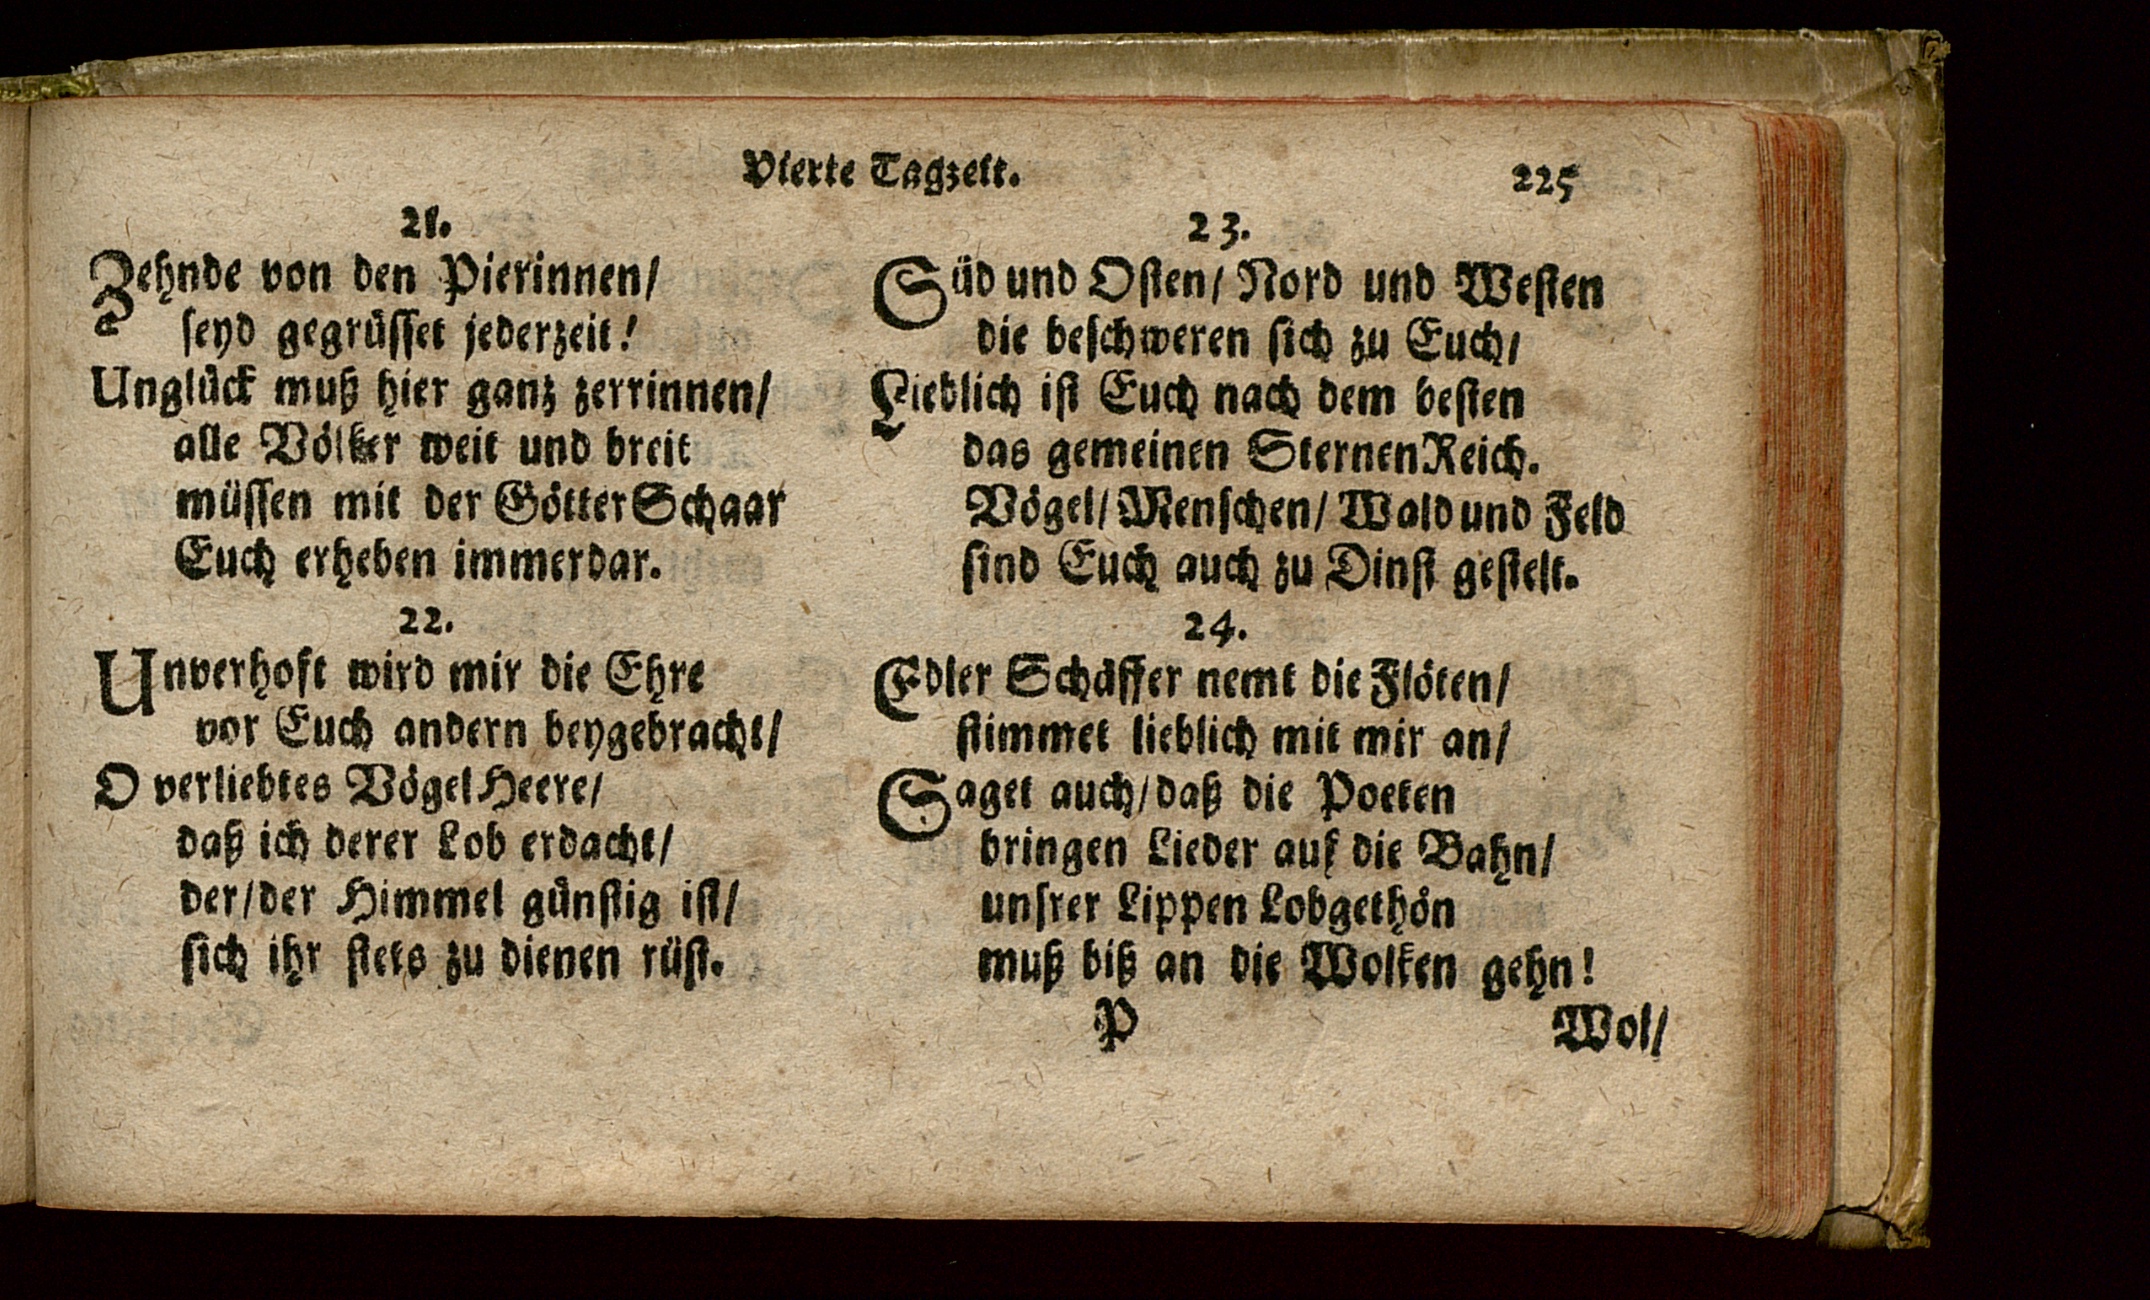 Vierte Tagzeit. 225
21.
Zehnde von den Pierinnen/
seyd gegrüsset jederzeit!
Unglück muß hier ganz zerrinnen/
alle Völker weit und breit
müssen mit der GötterSchaar
Euch erheben immerdar.
22.
Unverhoft wird mir die Ehre
vor Euch andern beygebracht/
O verliebtes VögelHeere/
daß ich derer Lob erdacht/
der/der Himmel günstig ist/
sich ihr stets zu dienen rüst.
23.
Süd und Osten/ Nord und Westen
die beschweren sich zu Euch/
Lieblich ist Euch nach dem besten
das gemeinen SternenReich.
Vögel/ Menschen/ Wald und Feld
sind Euch auch zu Dinst gestelt.
24.
Edler Schäffer nemt die Flöten/
stimmet lieblich mit mir an/
Saget auch/daß die Poeten
bringen Lieder auf die Bahn/
unsrer Lippen Lobgethön
muß biß an die Wolken gehn!
P Wol/